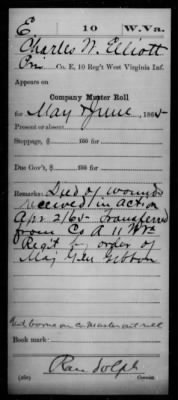 E 10 W.Va.
Charles W. Elliott
Co. E, 10 Reg't West Virginia Inf.
Appears on
Company Muster Roll
for May & June, 1865
Present or absent
Stoppage, $ 100 for
Due Gov't, $ 100 for
Remarks: Died of wounds
received in action
Apr 2/65. Transferred
from Co A 11 W Va
Regt by order of
Maj Genl Gibbon
Book mark:
Randolph
(358) Copyist.